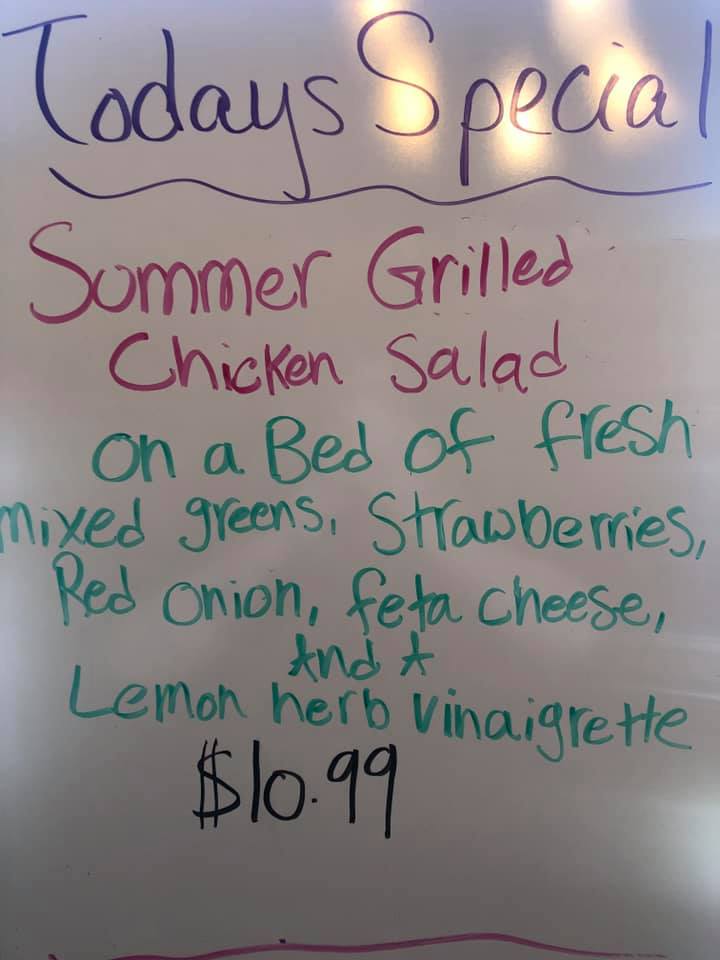 Todays Special
Summer Grilled
Chicken Salad
on a Bed of fresh
mixed greens, Strawberries,
Red onion, feta cheese,
And A
Lemon herb vinaigrette
$10.99